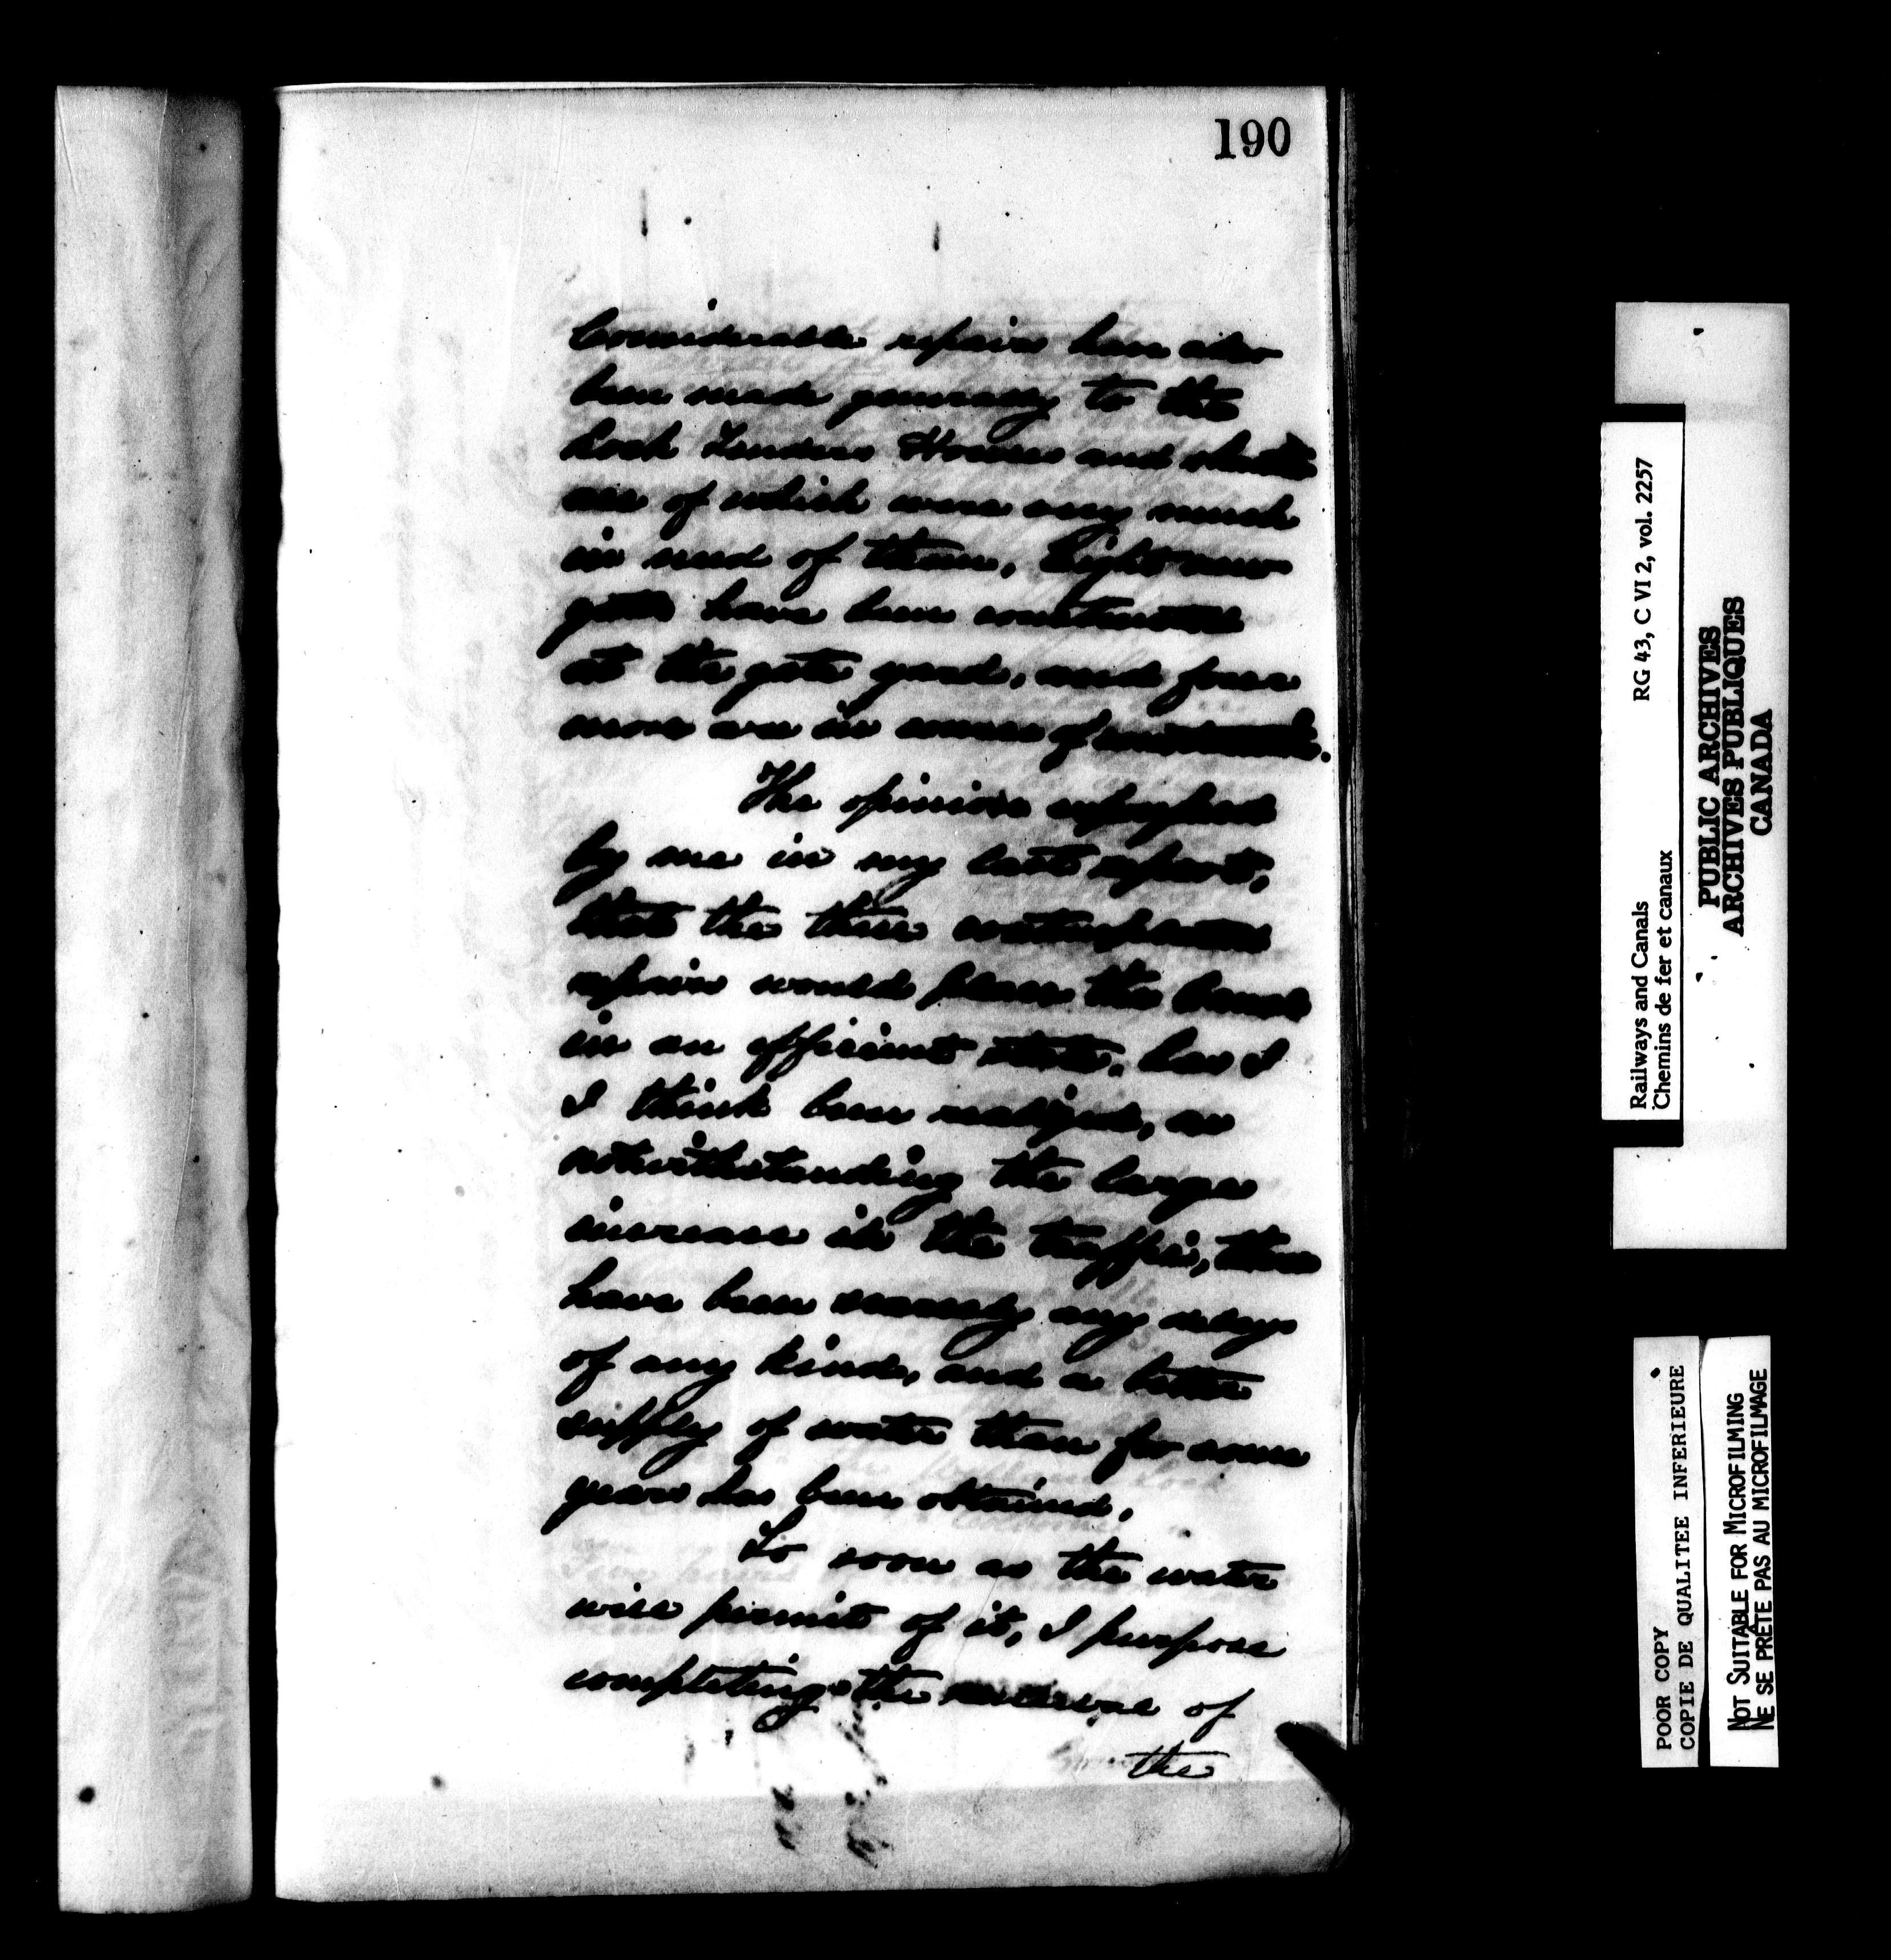 190
Considerable repairs have also
been made generally to the
Lock Tenders Houses and
all of which were very much
in need of them. Eight new
gates have been constructed
at the gate yard, and four
more are in course of
The opinion expressed
by me in my last report,
that the then contemplated
repairs would place the Canal
in an efficient state. has I
I think been realized, as
notwithstanding the large
increase in the traffic, there
have been scarcely any delays
of any kind, and a better
supply of water than for some
years has been obtained.
So soon as the water
will permit of it, I purpose
completing the of
the
Railways and Canals RG 43, C VI 2, vol. 2257
Chemins de fer et canaux
PUBLIC ARCHIVES
ARCHIVES PUBLIQUES
CANADA
POOR COPY
COPIE DE QUALITEE INFERIEURE
NOT SUITABLE FOR MICROFILMING
NE SE PRÊTE PAS AU MICROFILMAGE